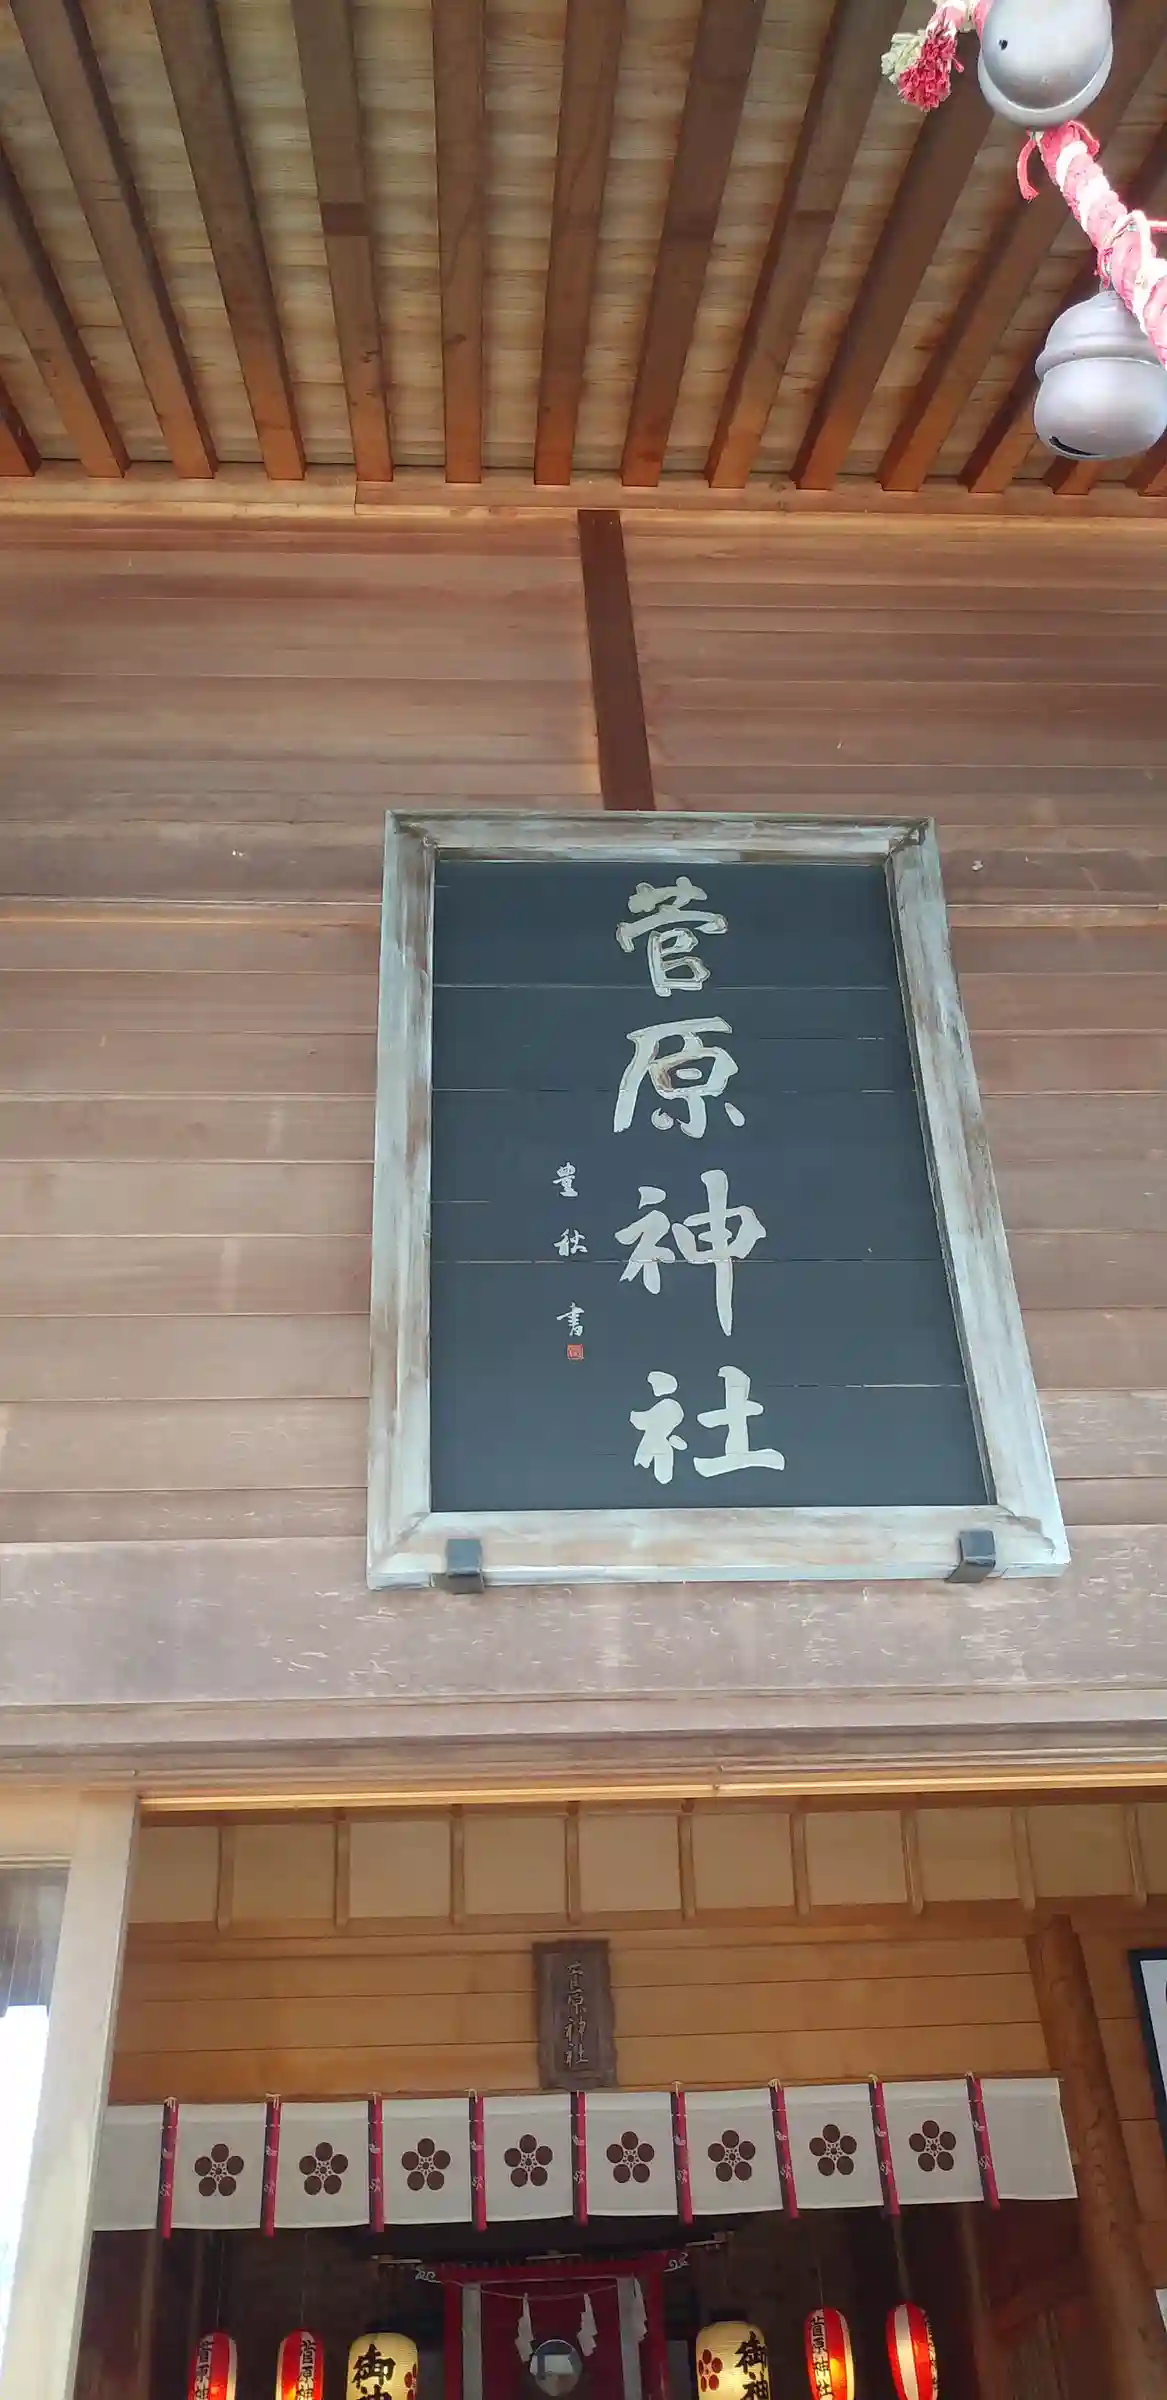 菅原神社
豊秋書
菅原神社
菅原
菅原神
御神
御神
菅原神社